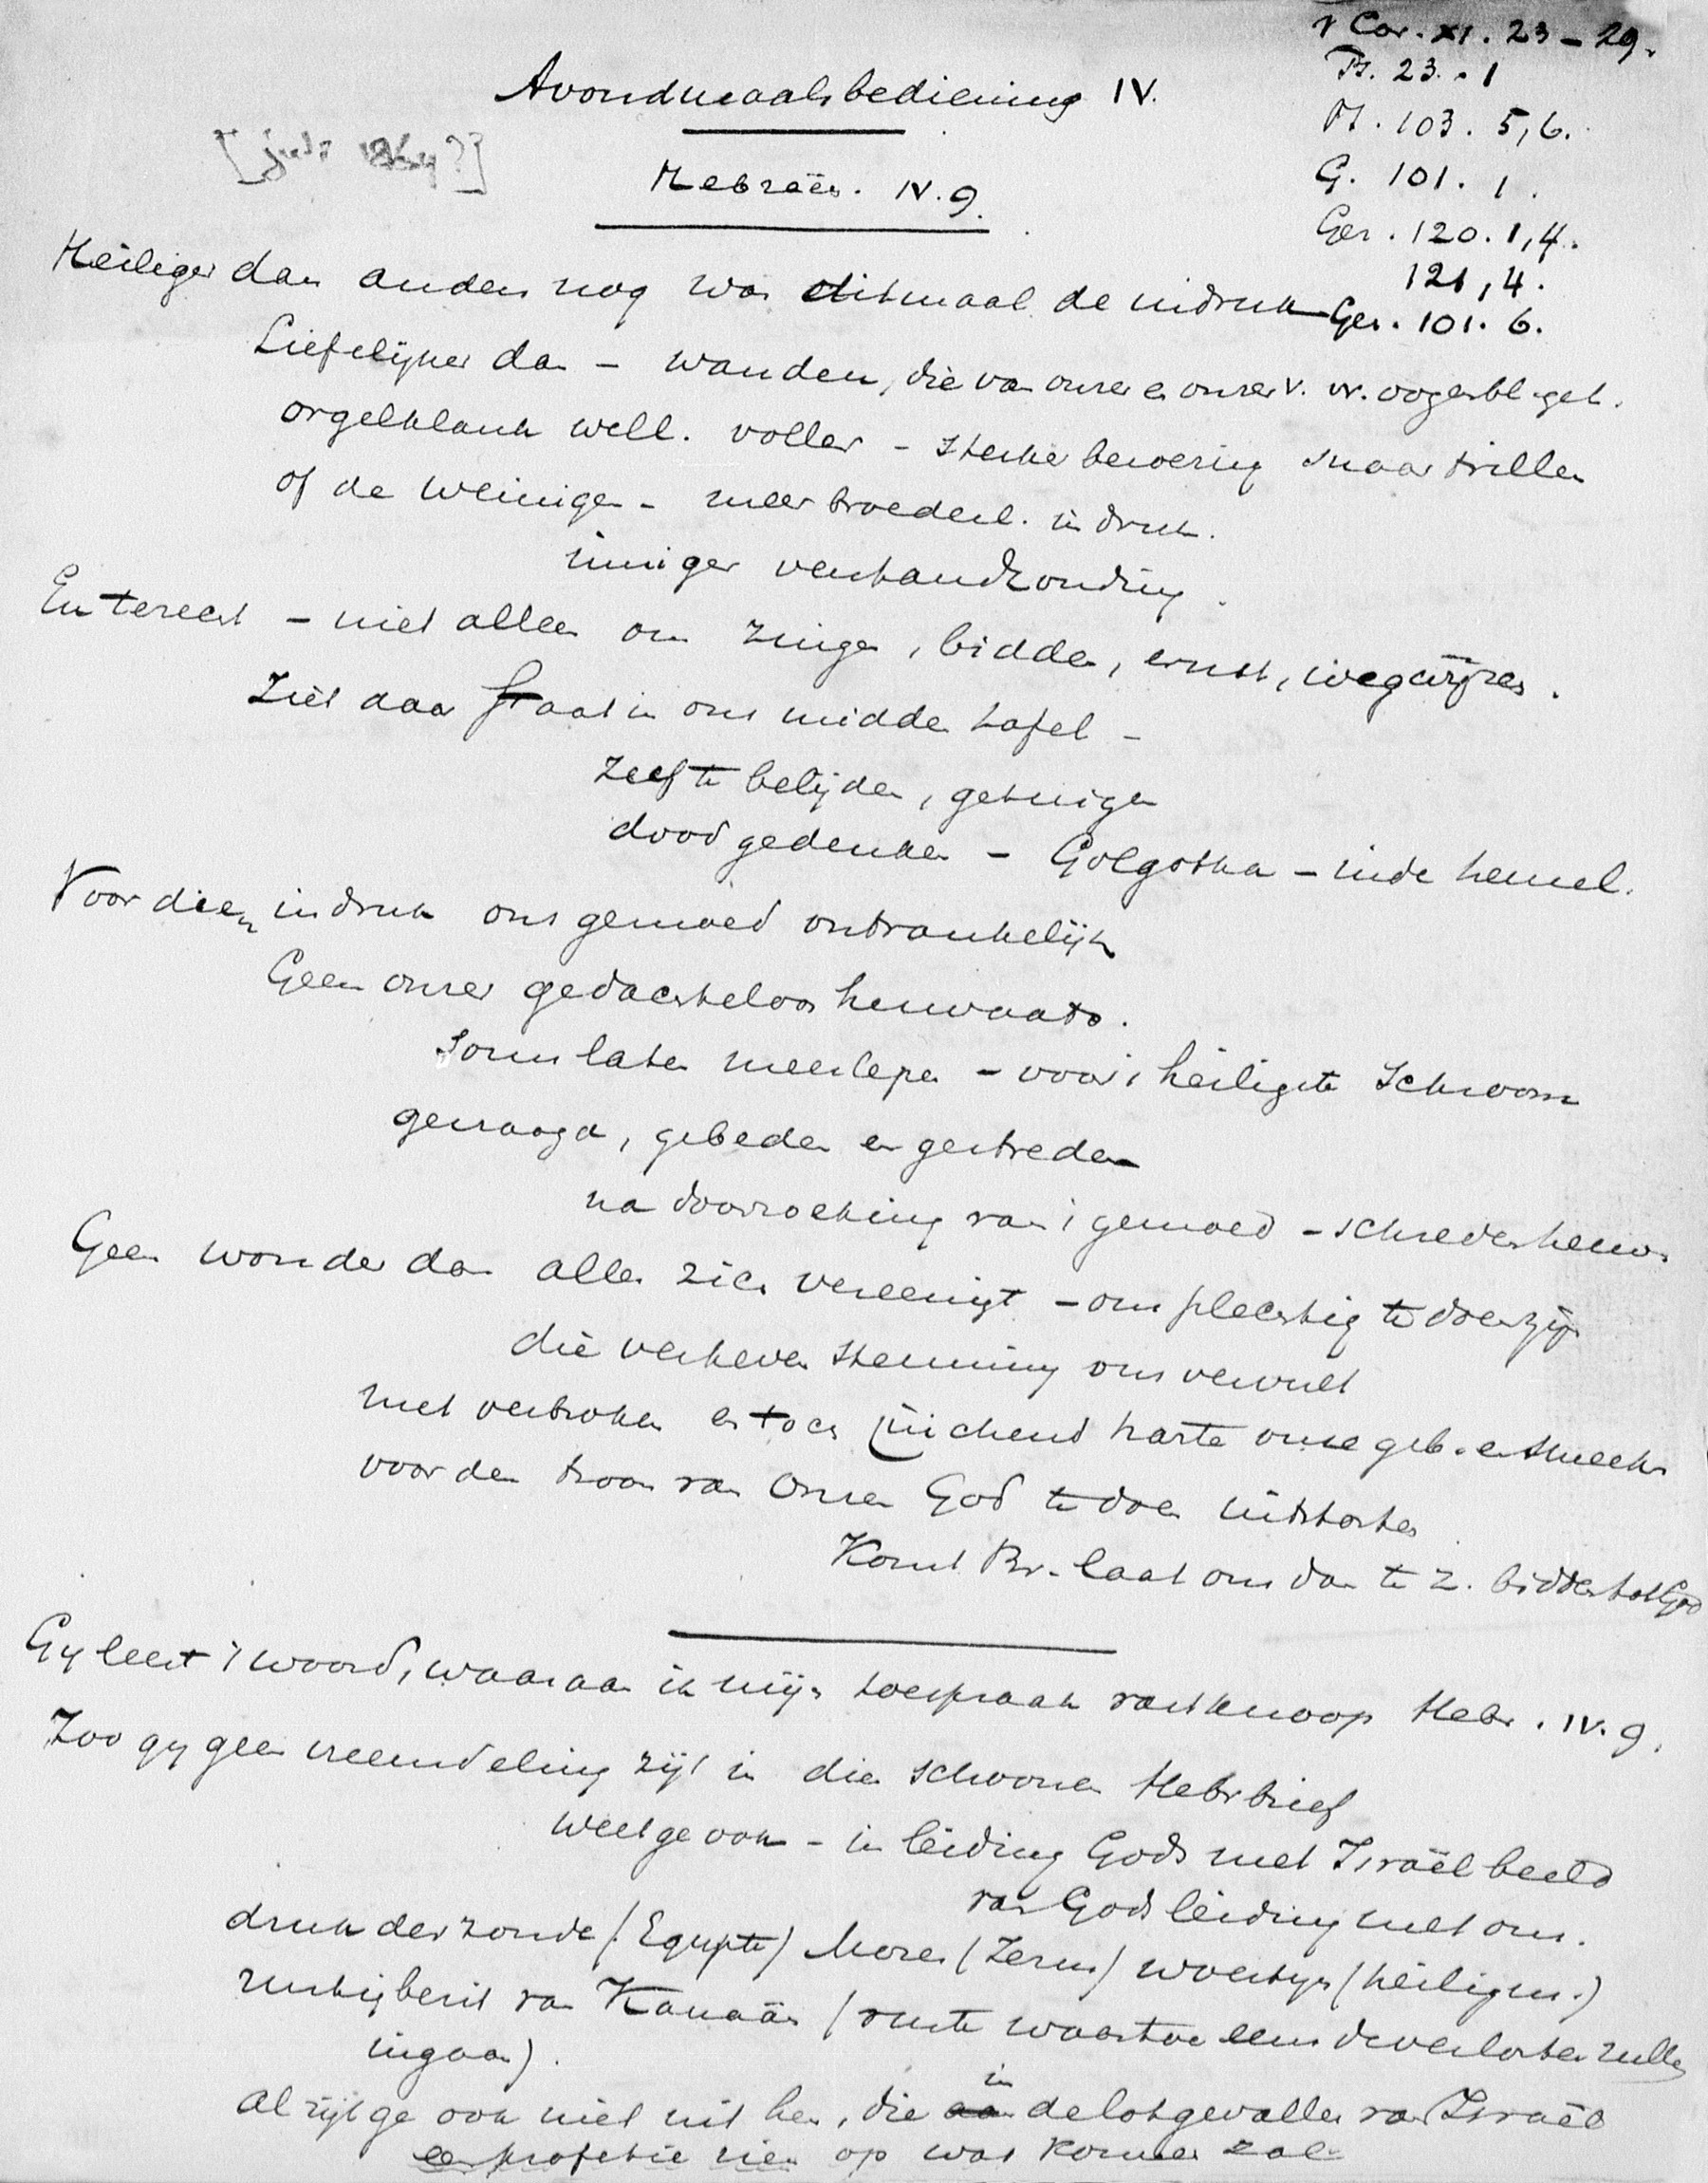 1 Cor. XI. 23 - 29.
Ps. 23. 1
Ps. 103. 5, 6.
G. 101. 1.
Gez. 120. 1, 4.
121, 4.
Gez. 101. 6.
Avondmaalsbediening IV.
[juli 1864?]
Hebraën. IV. 9.
Heiliger dan anders nog was ditmaal de indruk
Liefelijker dan - wanden, die van onzer en onzer v. vr. oogenbl. get.
orgelklank well. voller - sterker bewoering snaar trillen
of de weinigen - meer broederl. indruk.
inniger verstandhouding.
En terecht - niet alleen om zingen, bidden, ernst, wegwijzer.
Ziet daar staat in ons midden tafel -
zelf te belijden, getuigen
dood gedenken - Golgotha - in de hemel.
Voor dien indruk ons gemoed ontvankelijk
Geen onzer gedachteloos herwaarts.
Soms laten meeslepen - voor 't heiligste schroom
gevraagd, gebeden en gestreden
na doorzoeking van 't gemoed - schreden herw.
Geen wonder dan alles zich vereenigt - om plechtig te doen zijn
die verheven stemming ons vervult
met verbroken en toch juichend harte onze geb. en smeek.
voor den troon van Onzen God te doen uitstorten
Komt Br. laat ons dan te z. bidden tot God
Gy leest 't woord, waaraan ik mijn toespraak vastknoop Hebr. IV. 9.
Zoo gy geen vreemdeling zijt in dien schoonen Hebrbrief
weet ge ook - in leiding Gods met Israël beeld
van Gods leiding met ons.
druk der zonde (Egypte) Mozes (Jezus) woestyn (heiligm.)
rustig bezit van Kanaän (ruste waartoe eens de verlosten zullen
ingaan).
Al zijt ge ook niet uit hen, die in de lotgevallen van Israël
een profetie zien op wat komen zal